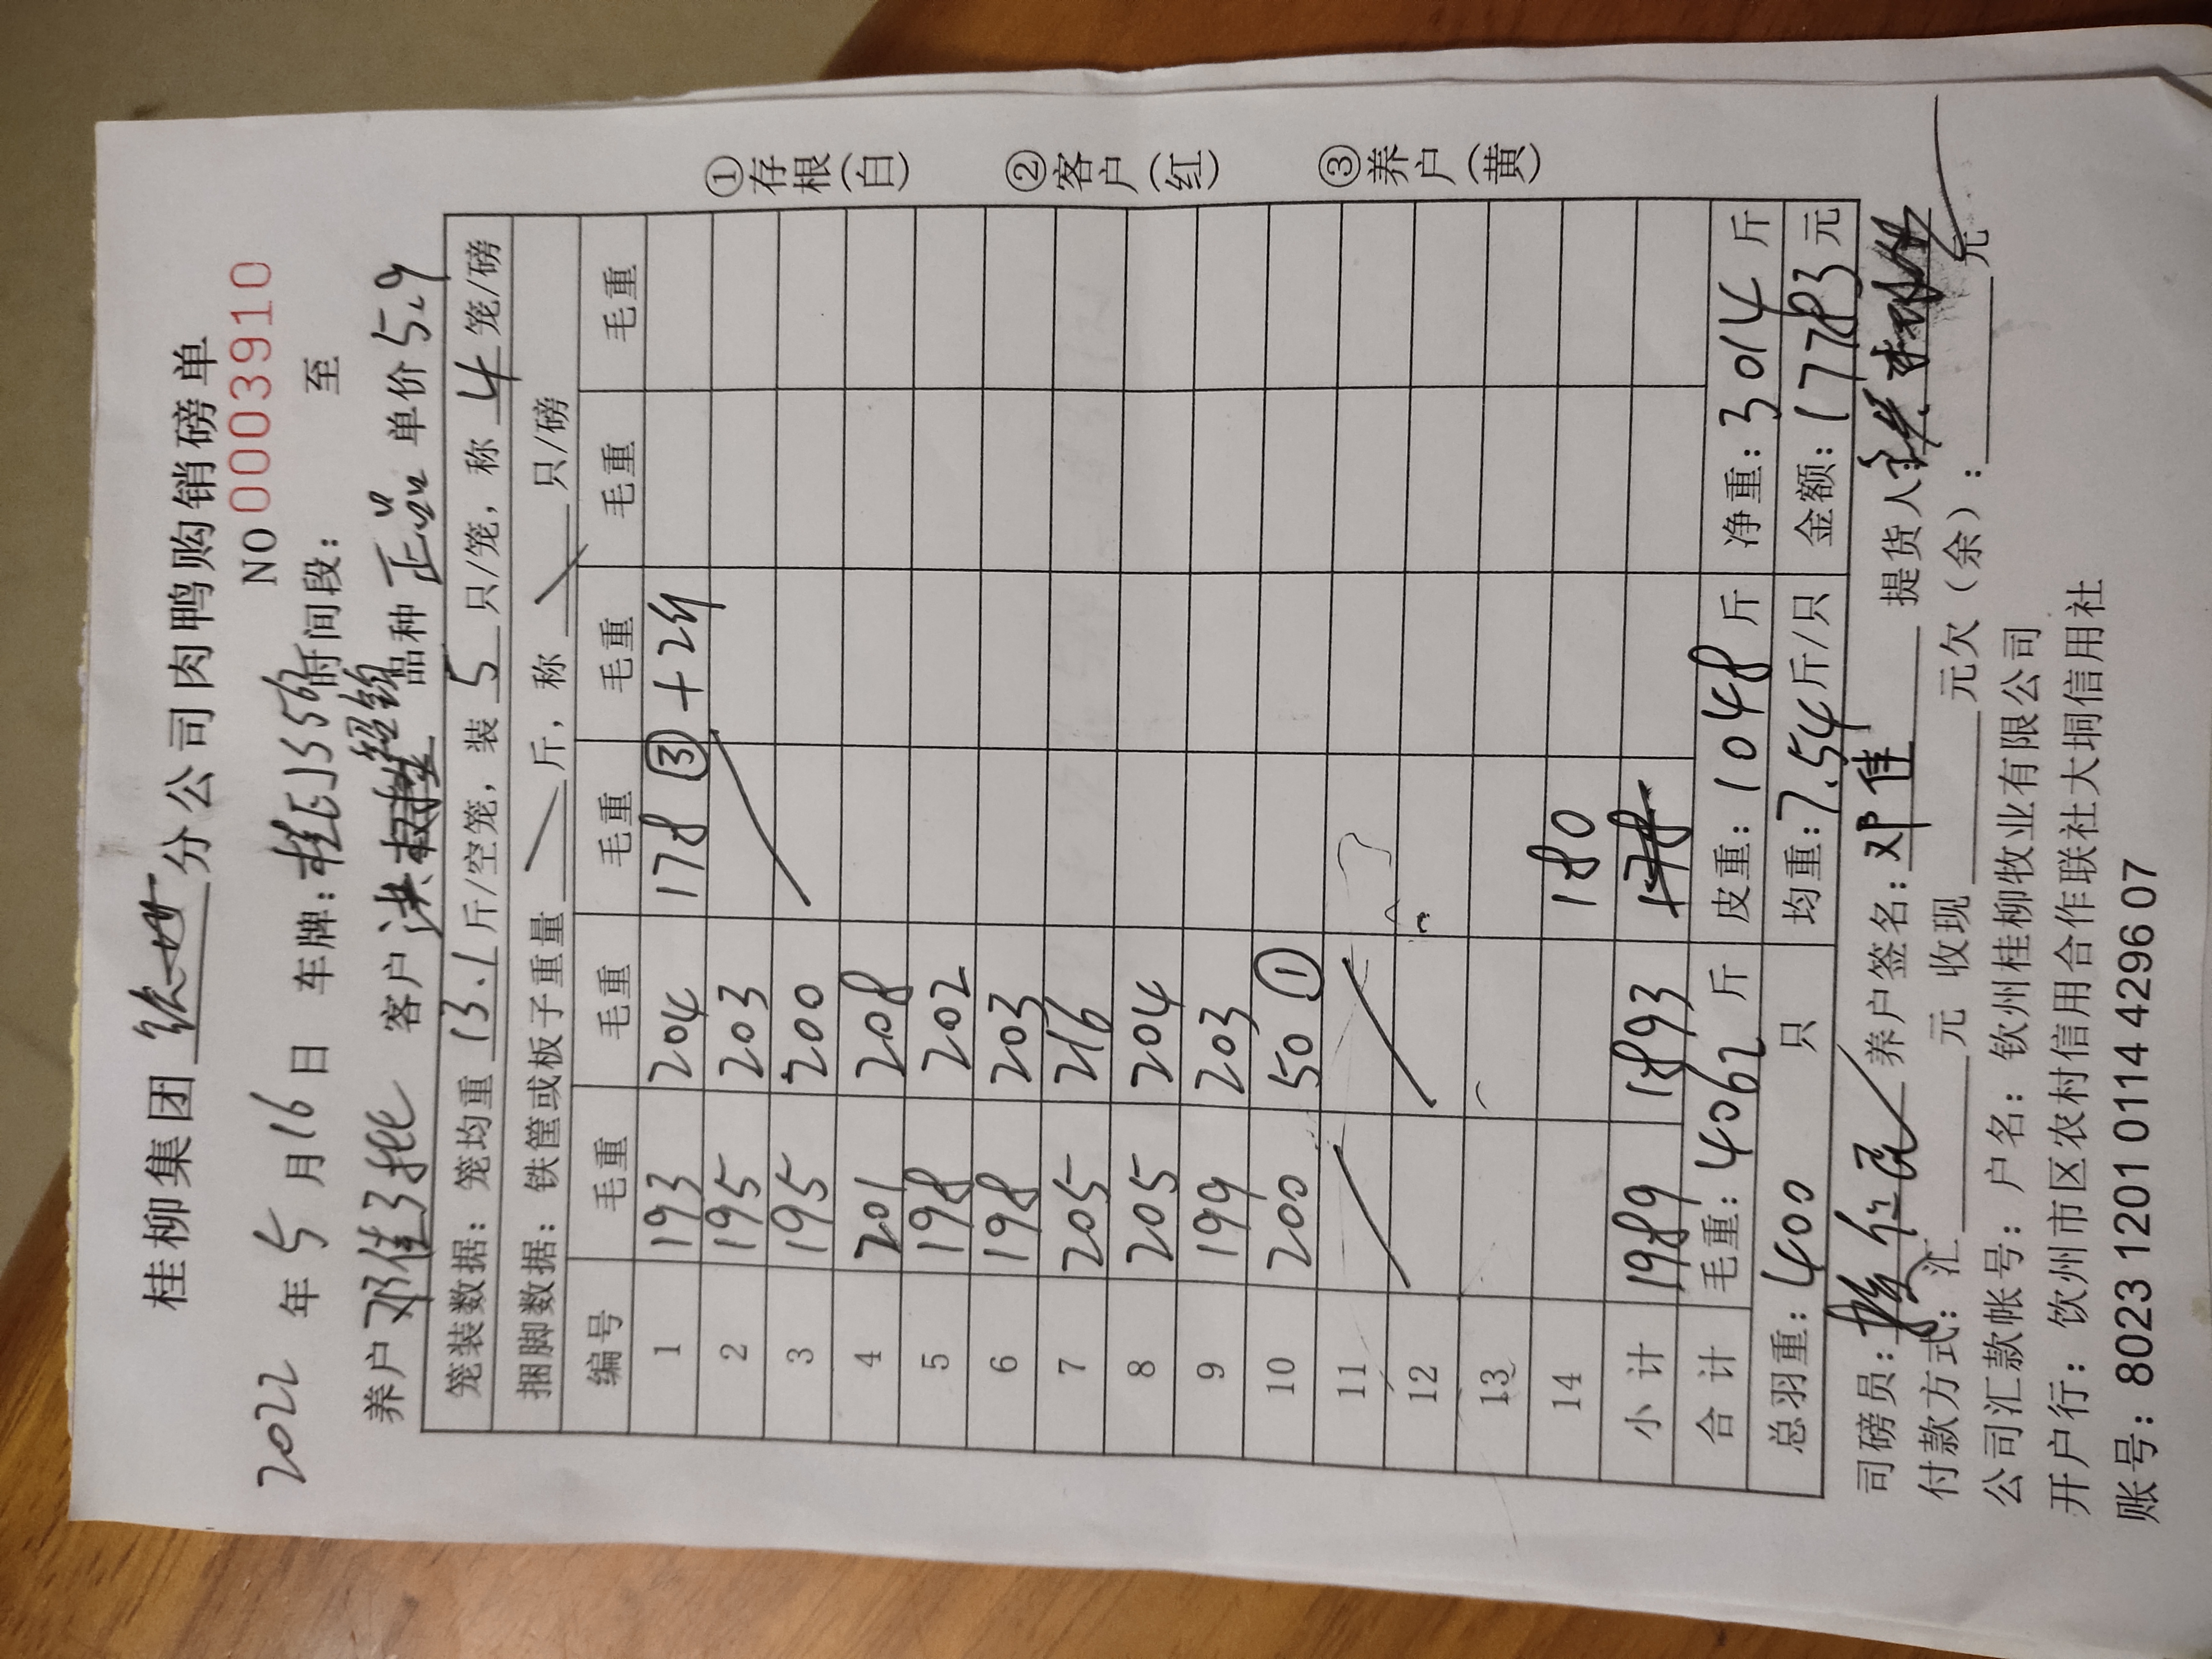 桂柳集团 分公司肉鸭购销磅单
NO 0003910
2022 年 5 月 16 日 车牌: 时间段: 至
养户 邓佳 客户 洪 品种 正品 单价 5.9
笼装数据: 笼均重 13.1 斤/空笼, 装 5 只/笼, 称 4 笼/磅
捆脚数据: 铁筐或板子重量 斤, 称 只/磅
编号 毛重 毛重 毛重 毛重 毛重 毛重
1 193 204 178 ③ +2斤
2 195 203
3 195 200
4 201 208
5 198 202
6 198 203
7 205 216
8 205 204
9 199 203
10 200 50 ①
11
12
13
14 180
小 计 1989 1893 178
合 计 毛重: 4062 斤 皮重: 1048 斤 净重: 3014 斤
总羽重: 400 只 均重: 7.54 斤/只 金额: 17783 元
司磅员: 养户签名: 邓佳 提货人
付款方式: 汇 元 收现 元欠(余): 元
公司汇款帐号: 户名: 钦州桂柳牧业有限公司
开户行: 钦州市区农村信用合作联社大垌信用社
账号: 8023 1201 0114 4296 07
①存根(白)
②客户(红)
③养户(黄)